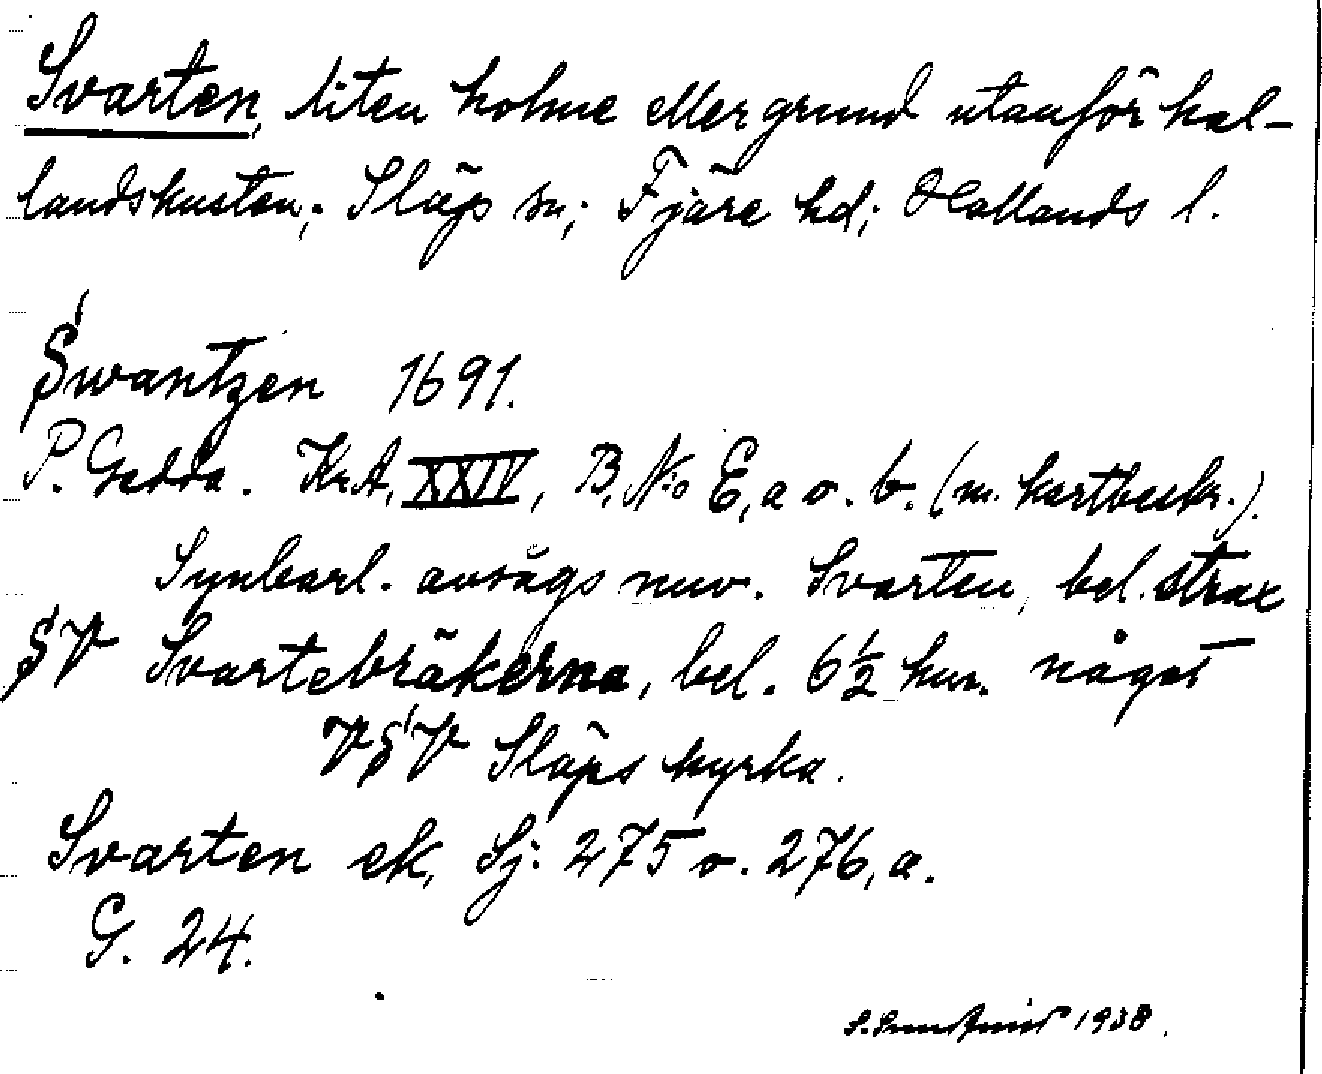 Svarten, liten holme eller grund utanför hal-
landskusten; Släp sn; Fjäre hd; Hallands l.
Swantzen 1691.
P. Gedda. Kr.A. XXIV, B, N:o E, a o. b. (m. kartbeskr.).
Synbarl. avsågs nuv. Svarten, bel. strax
SV Svartebräkerna, bel. 6½ km. något
VSV Släps kyrka.
Svarten ek. Sj: 275 o. 276, a.
G. 24.
1938.